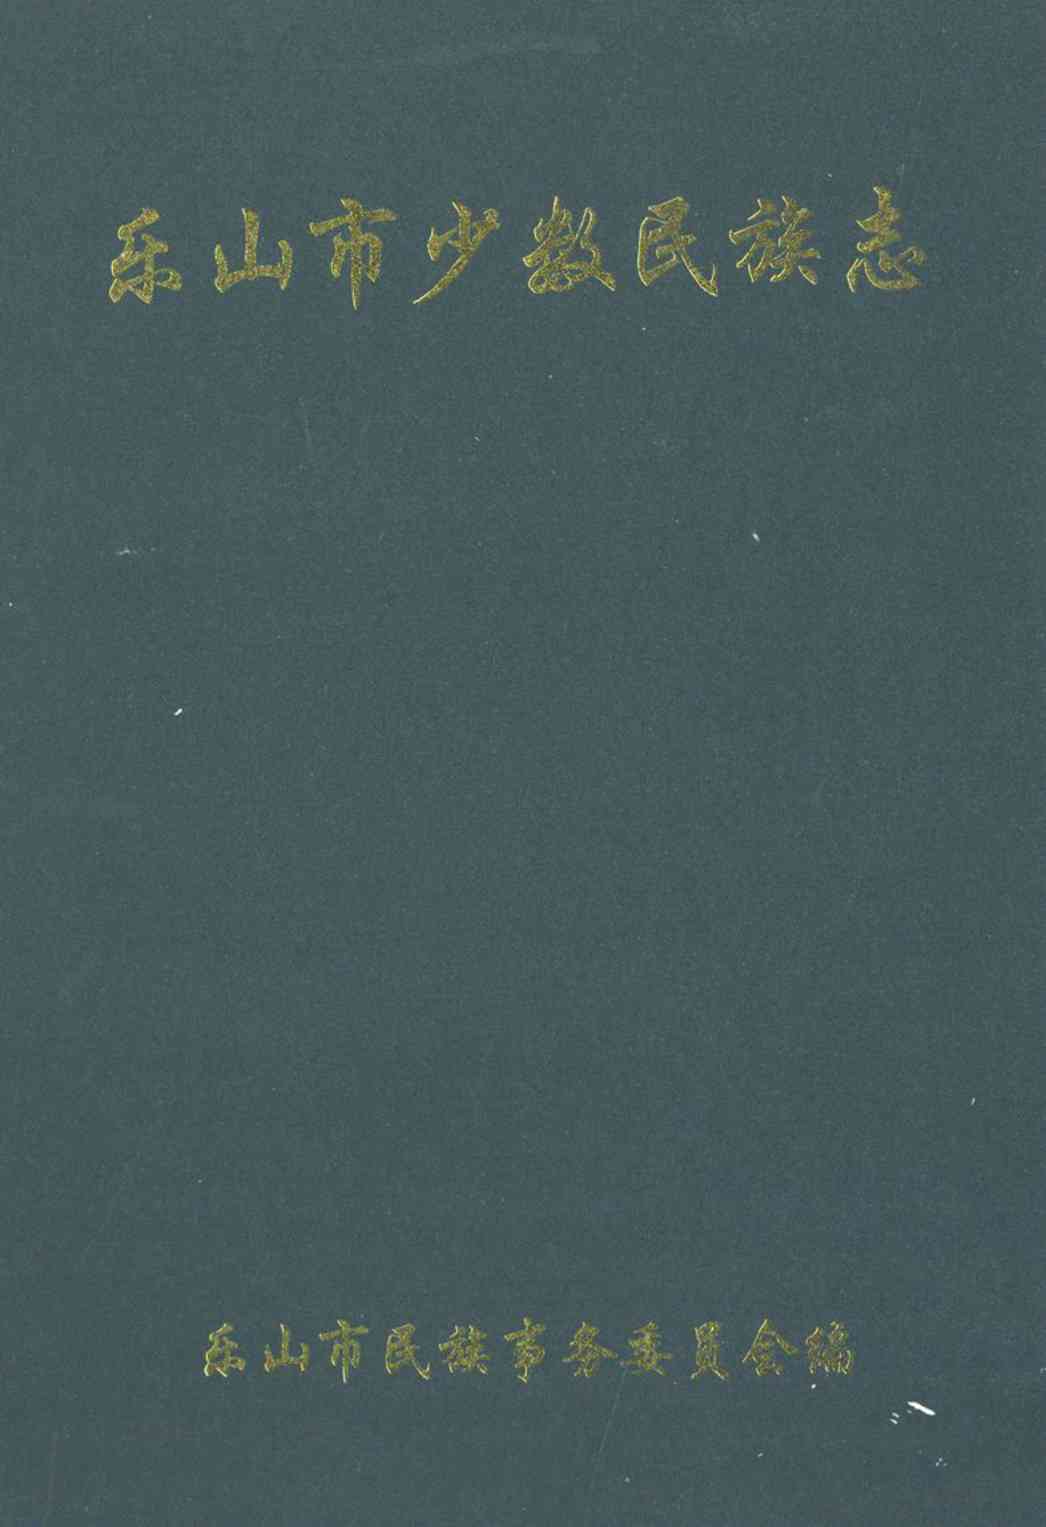 乐山市少数民族志
乐山市民族事务委员会编